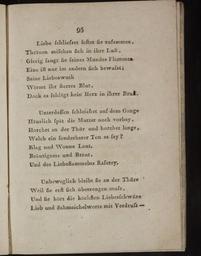 95
Liebe schliesset fester sie zusammen,
Thränen mischen sich in ihre Lust,
Gierig saugt sie seines Mundes Flammen
Eins ist nur im andern sich bewusst;
Seine Liebeswuth
Wärmt ihr starres Blut,
Doch es schlägt kein Herz in ihrer Brust.
Unterdessen schleichet auf dem Gange
Häuslich spät die Mutter noch vorbey,
Horchet an der Thür und horchet lange,
Welch ein sonderbarer Ton es sey?
Klag und Wonne Laut,
Bräutigams und Braut,
Und des Liebestammelns Raserey.
Unbeweglich bleibt sie an der Thüre
Weil sie erst sich überzeugen muss,
Und sie hört die höchsten Liebesschwüre
Lieb und Schmeichelworte mit Verdruss —